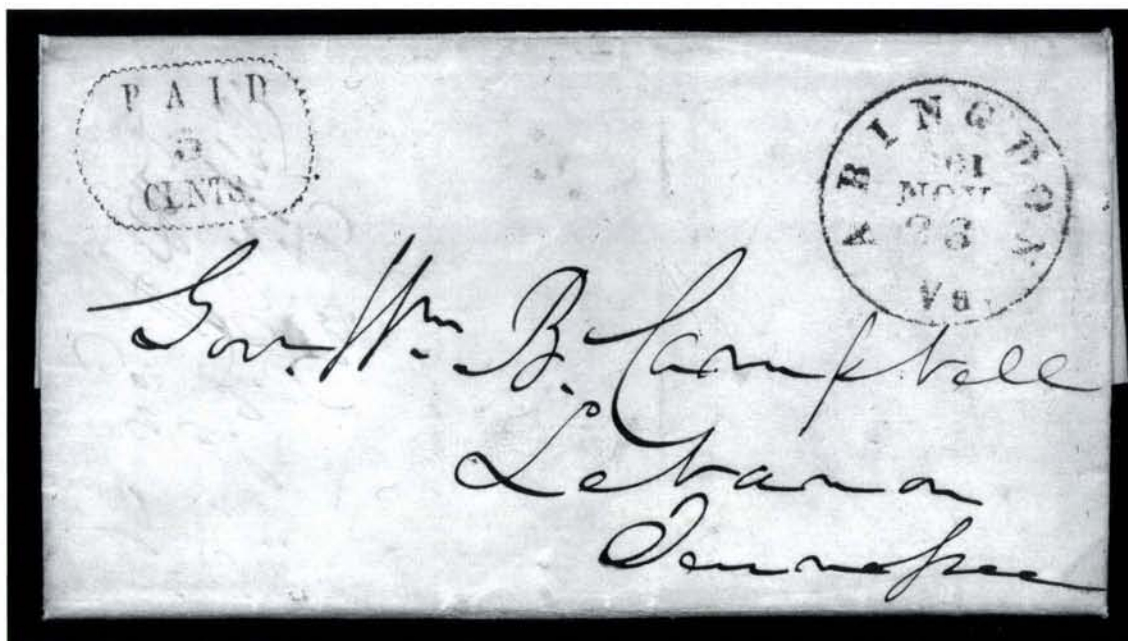 PAID
5
CENTS.
ABINGDON
61
NOV
23
VA.
Gov. Wm. B. Campbell
Lebanon
Tennessee